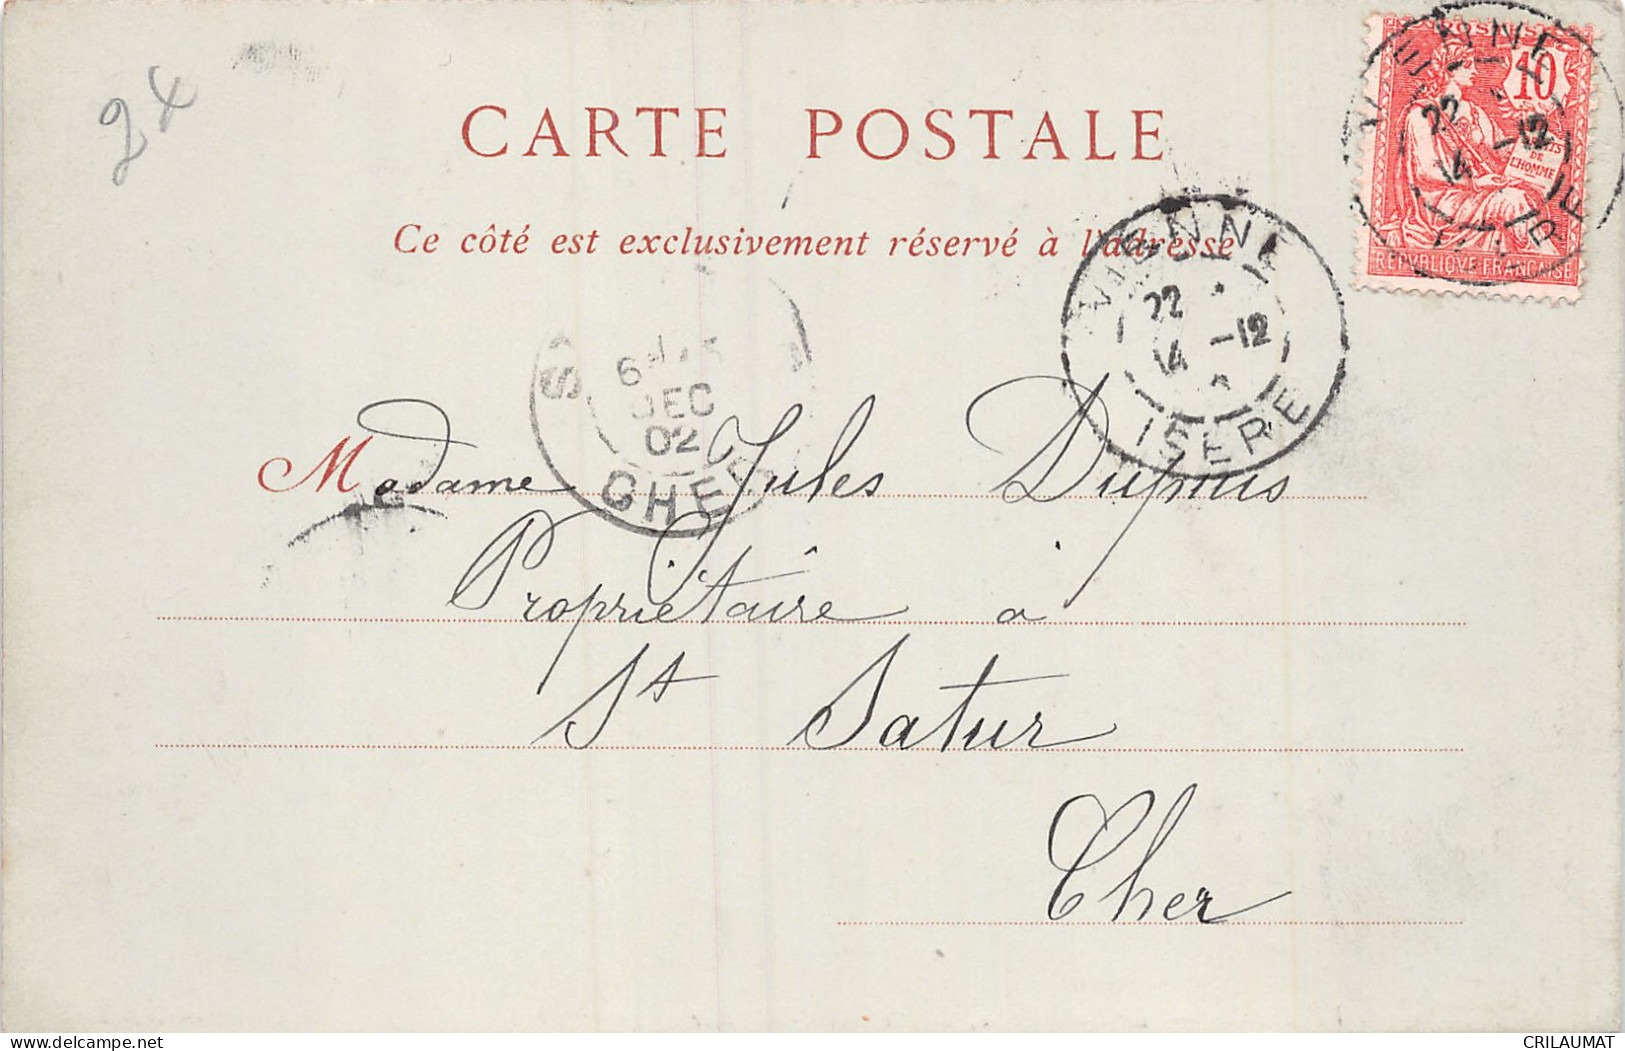 24
CARTE POSTALE
Ce côté est exclusivement réservé à l'adresse
POSTES
10
DROITS
DE
L'HOMME
REPVBLIQVE FRANÇAISE
VIENNE
22 -12
14
ISERE
VIENNE
22 -12
14
ISERE
DEC
02
CHER
Madame Jules Dupuis
Propriétaire à
St Satur
Cher
CRILAUMAT